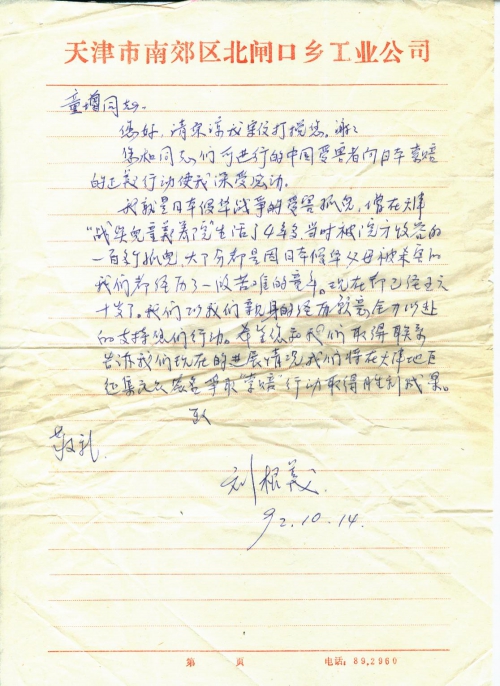 天津市南郊区北闸口乡工业公司
童增同志.
您好，请原谅我来信打搅您。谢谢
您和同志们所进行的中国受害者向日本索赔
的正义行动使我深受感动。
我就是日本侵华战争的受害孤儿，曾在天津
"战失儿童教养院"生活了4年多，当时被院方收容的
一百多孤儿，大部分都是因日本侵华父母被杀害的
我们都经历了一段苦难的童年。现在都已经五六
十岁了。我们以我们亲身的经历愿意全力以赴
的支持您们行动。希望您和我们取得联系
告诉我们现在的进展情况，我们将在天津地区
征集充分签名争取"索赔"行动取得胜利成果。
致
敬礼.
刘根义.
92.10.14.
第 页 电话：89.2960